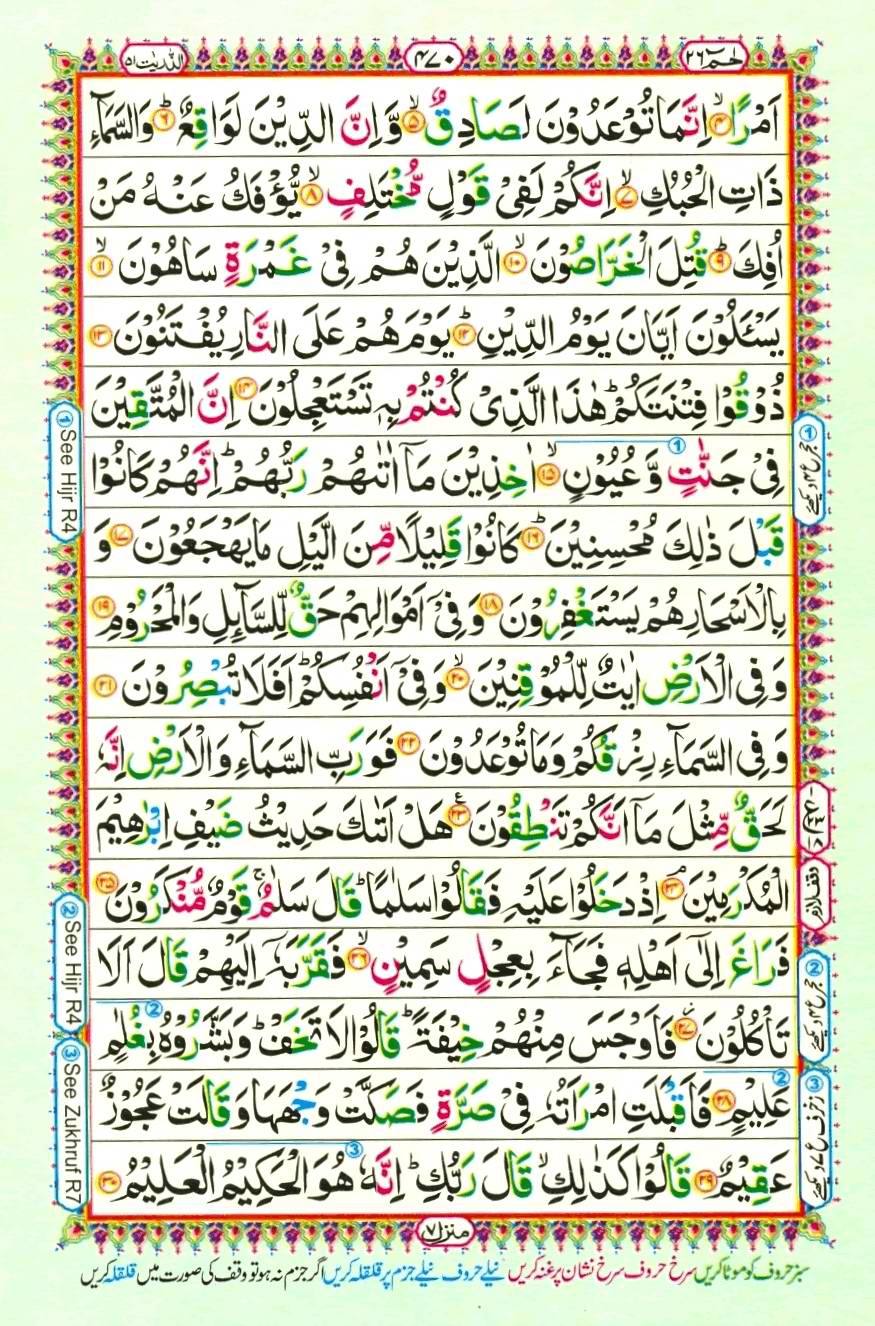 حٰمٓ ٢٦
٤٧٠
الذّٰريٰت ٥١
اَمۡرًا ۙ‏﴿۴﴾ اِنَّمَا تُوۡعَدُوۡنَ لَصَادِقٌ ۙ‏﴿۵﴾ وَّاِنَّ الدِّيۡنَ لَوَاقِعٌ ؕ‏﴿۶﴾ وَالسَّمَآءِ
ذَاتِ الۡحُبُكِ ۙ‏﴿۷﴾ اِنَّكُمۡ لَفِىۡ قَوۡلٍ مُّخۡتَلِفٍ ۙ‏﴿۸﴾ يُّؤۡفَكُ عَنۡهُ مَنۡ
اُفِكَ ؕ‏﴿۹﴾ قُتِلَ الۡخَرّٰصُوۡنَ ۙ‏﴿۱۰﴾ الَّذِيۡنَ هُمۡ فِىۡ غَمۡرَةٍ سَاهُوۡنَ ۙ‏﴿۱۱﴾
يَسۡـَٔلُوۡنَ اَيَّانَ يَوۡمُ الدِّيۡنِ ؕ‏﴿۱۲﴾ يَوۡمَ هُمۡ عَلَى النَّارِ يُفۡتَنُوۡنَ‏﴿۱۳﴾
ذُوۡقُوۡا فِتۡنَتَكُمۡ ؕ هٰذَا الَّذِىۡ كُنۡتُمۡ بِهٖ تَسۡتَعۡجِلُوۡنَ‏﴿۱۴﴾ اِنَّ الۡمُتَّقِيۡنَ
فِىۡ جَنّٰتٍ وَّعُيُوۡنٍ ۙ‏﴿۱۵﴾ اٰخِذِيۡنَ مَاۤ اٰتٰٮهُمۡ رَبُّهُمۡ‌ ؕ اِنَّهُمۡ كَانُوۡا
قَبۡلَ ذٰلِكَ مُحۡسِنِيۡنَ ؕ‏﴿۱۶﴾ كَانُوۡا قَلِيۡلًا مِّنَ الَّيۡلِ مَا يَهۡجَعُوۡنَ‏﴿۱۷﴾ وَ
بِالۡاَسۡحَارِ هُمۡ يَسۡتَغۡفِرُوۡنَ‏﴿۱۸﴾ وَفِىۡۤ اَمۡوَالِهِمۡ حَقٌّ لِّلسَّآئِلِ وَالۡمَحۡرُوۡمِ‏﴿۱۹﴾
وَفِى الۡاَرۡضِ اٰيٰتٌ لِّلۡمُوۡقِنِيۡنَ ۙ‏﴿۲۰﴾ وَفِىۡۤ اَنۡفُسِكُمۡ‌ؕ اَفَلَا تُبۡصِرُوۡنَ‏﴿۲۱﴾
وَفِى السَّمَآءِ رِزۡقُكُمۡ وَمَا تُوۡعَدُوۡنَ‏﴿۲۲﴾ فَوَرَبِّ السَّمَآءِ وَالۡاَرۡضِ اِنَّهٗ
لَحَقٌّ مِّثۡلَ مَاۤ اَنَّكُمۡ تَنۡطِقُوۡنَ‏﴿۲۳﴾ هَلۡ اَتٰٮكَ حَدِيۡثُ ضَيۡفِ اِبۡرٰهِيۡمَ
الۡمُكۡرَمِيۡنَ‌ۘ‏﴿۲۴﴾ اِذۡ دَخَلُوۡا عَلَيۡهِ فَقَالُوۡا سَلٰمًا‌ ؕ قَالَ سَلٰمٌ ۚ قَوۡمٌ مُّنۡكَرُوۡنَ‏﴿۲۵﴾
فَرَاغَ اِلٰٓى اَهۡلِهٖ فَجَآءَ بِعِجۡلٍ سَمِيۡنٍ ۙ‏﴿۲۶﴾ فَقَرَّبَهٗۤ اِلَيۡهِمۡ قَالَ اَلَا
تَاۡكُلُوۡنَ‏﴿۲۷﴾ فَاَوۡجَسَ مِنۡهُمۡ خِيۡفَةً‌ ؕ قَالُوۡا لَا تَخَفۡ‌ ؕ وَبَشَّرُوۡهُ بِغُلٰمٍ
عَلِيۡمٍ‏﴿۲۸﴾ فَاَقۡبَلَتِ امۡرَاَتُهٗ فِىۡ صَرَّةٍ فَصَكَّتۡ وَجۡهَهَا وَقَالَتۡ عَجُوۡزٌ
عَقِيۡمٌ‏﴿۲۹﴾ قَالُوۡا كَذٰلِكِ ۙ قَالَ رَبُّكِ‌ؕ اِنَّهٗ هُوَ الۡحَكِيۡمُ الۡعَلِيۡمُ‏﴿۳۰﴾
① حجر ع ٤ دیکھئے
وقف لازم
② حجر ع ٤ دیکھئے
③ زخرف ع ٧ دیکھئے
① See Hijr R4
② See Hijr R4
③ See Zukhruf R7
منزل ٧
سبز حروف کو موٹا کریں سرخ حروف سرخ نشان پر غنہ کریں نیلے حروف نیلے جزم پر قلقلہ کریں اگر جزم نہ ہو تو وقف کی صورت میں قلقلہ کریں